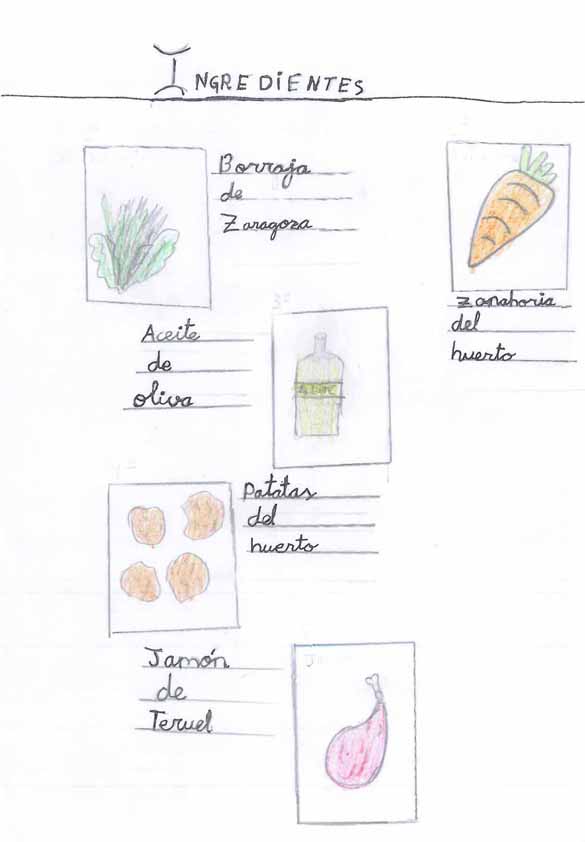 INGREDIENTES
Borraja
de
Zaragoza
Zanahoria
del
huerto
3º
Aceite
de
oliva
4º
Patatas
del
huerto
Jamón
de
Teruel